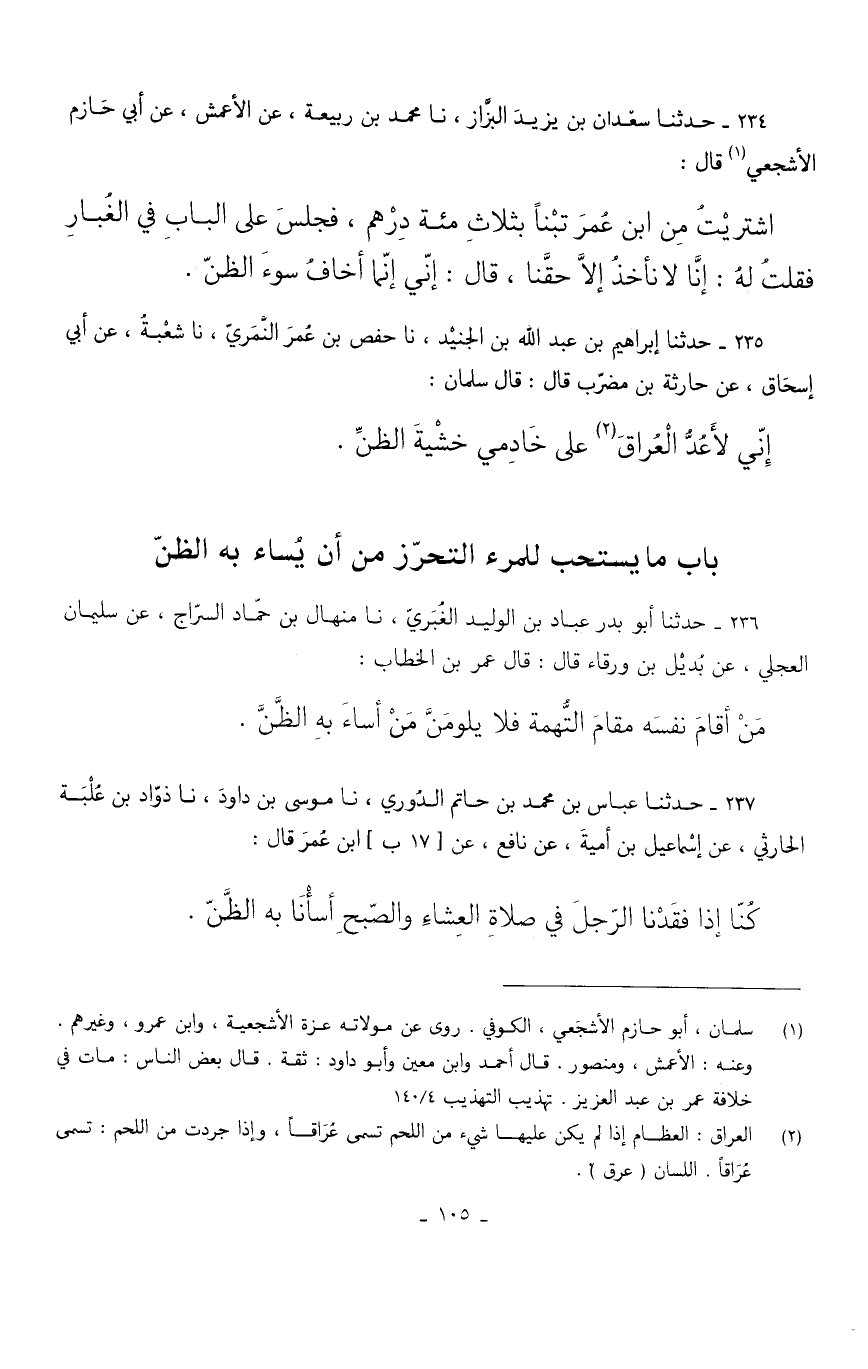 ٢٣٤ ـ حدثنا سعْدان بن يزيدَ البزَّاز ، نا محمد بن ربيعة ، عن الأعمش ، عن أبي حَازم
الأشجعي(١) قال :
اشتريْتُ مِن ابن عُمرَ تبْناً بثلاثِ مئة دِرْهم ، فجلسَ على البابِ في الغُبارِ
فقلتُ لهُ : إنَّا لا نأخذُ إلاَّ حقَّنا ، قال : إنّي إنّما أخافُ سوءَ الظنّ .
٢٣٥ ـ حدثنا إبراهيم بن عبد الله بن الجنيْد ، نا حفص بن عُمرَ النَّمَريّ ، نا شعْبةُ ، عن أبي
إسحَاق ، عن حارثة بن مضرّب قال : قال سلمان :
إنّي لأَعُدُّ الْعُراقَ(٢) على خَادِمي خشْيةَ الظنِّ .
باب ما يستحب للمرء التحرّز من أن يُساء به الظنّ
٢٣٦ ـ حدثنا أبو بدر عباد بن الوليد الغُبَريّ ، نا منهال بن حمّاد السرّاج ، عن سليمان
العجلي ، عن بُديْل بن ورقاء قال : قال عمر بن الخطاب :
مَنْ أقامَ نفسَه مقامَ التُّهمة فلا يلومَنَّ مَنْ أساءَ بهِ الظَّنَّ .
٢٣٧ ـ حدثنا عباس بن محمد بن حاتم الدُوري ، نا موسى بن داودَ ، نا ذوّاد بن عُلْبَة
الحارثي ، عن إسْماعيل بن أميةَ ، عن نافع ، عن [ ١٧ ب ] ابن عُمرَ قال :
كُنّا إذا فقَدْنا الرّجلَ في صلاةِ العِشاءِ والصّبحِ أسأْنَا به الظَّنّ .
(١) سلمان ، أبو حازم الأشجَعي ، الكوفي . روى عن مولاته عزة الأشجعية ، وابن عمرو ، وغيرهم .
وعنه : الأعمش ، ومنصور . قال أحمد وابن معين وأبو داود : ثقة . قال بعض الناس : مات في
خلافة عمر بن عبد العزيز . تهذيب التهذيب ١٤٠/٤
(٢) العراق : العظام إذا لم يكن عليها شيء من اللحم تسمى عُرَاقاً ، وإذا جردت من اللحم : تسمى
عُرَاقاً . اللسان ( عرق ) .
ـ ١٠٥ ـ